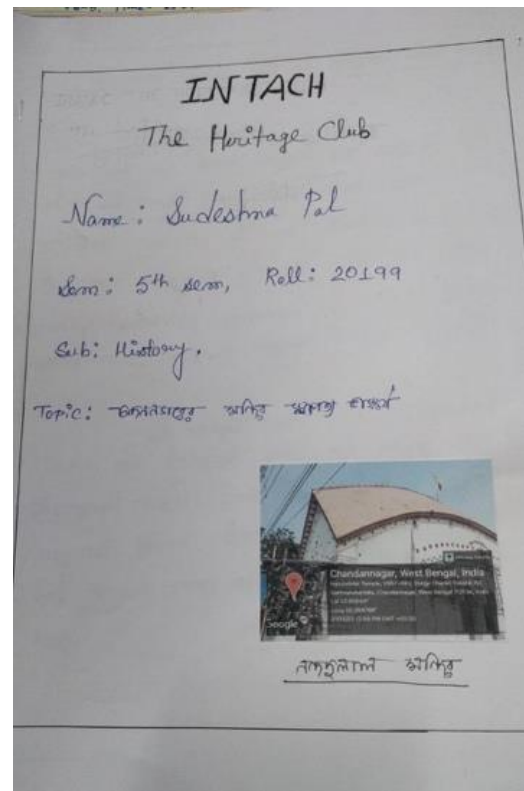 INTACH
The Heritage Club
Name: Sudeshna Pal
Sem: 5th sem, Roll: 20199
Sub: History.
Topic: চন্দননগরের মন্দির স্থাপত্য ভাস্কর্য
Chandannagar, West Bengal, India
Google
নন্দদুলাল মন্দির